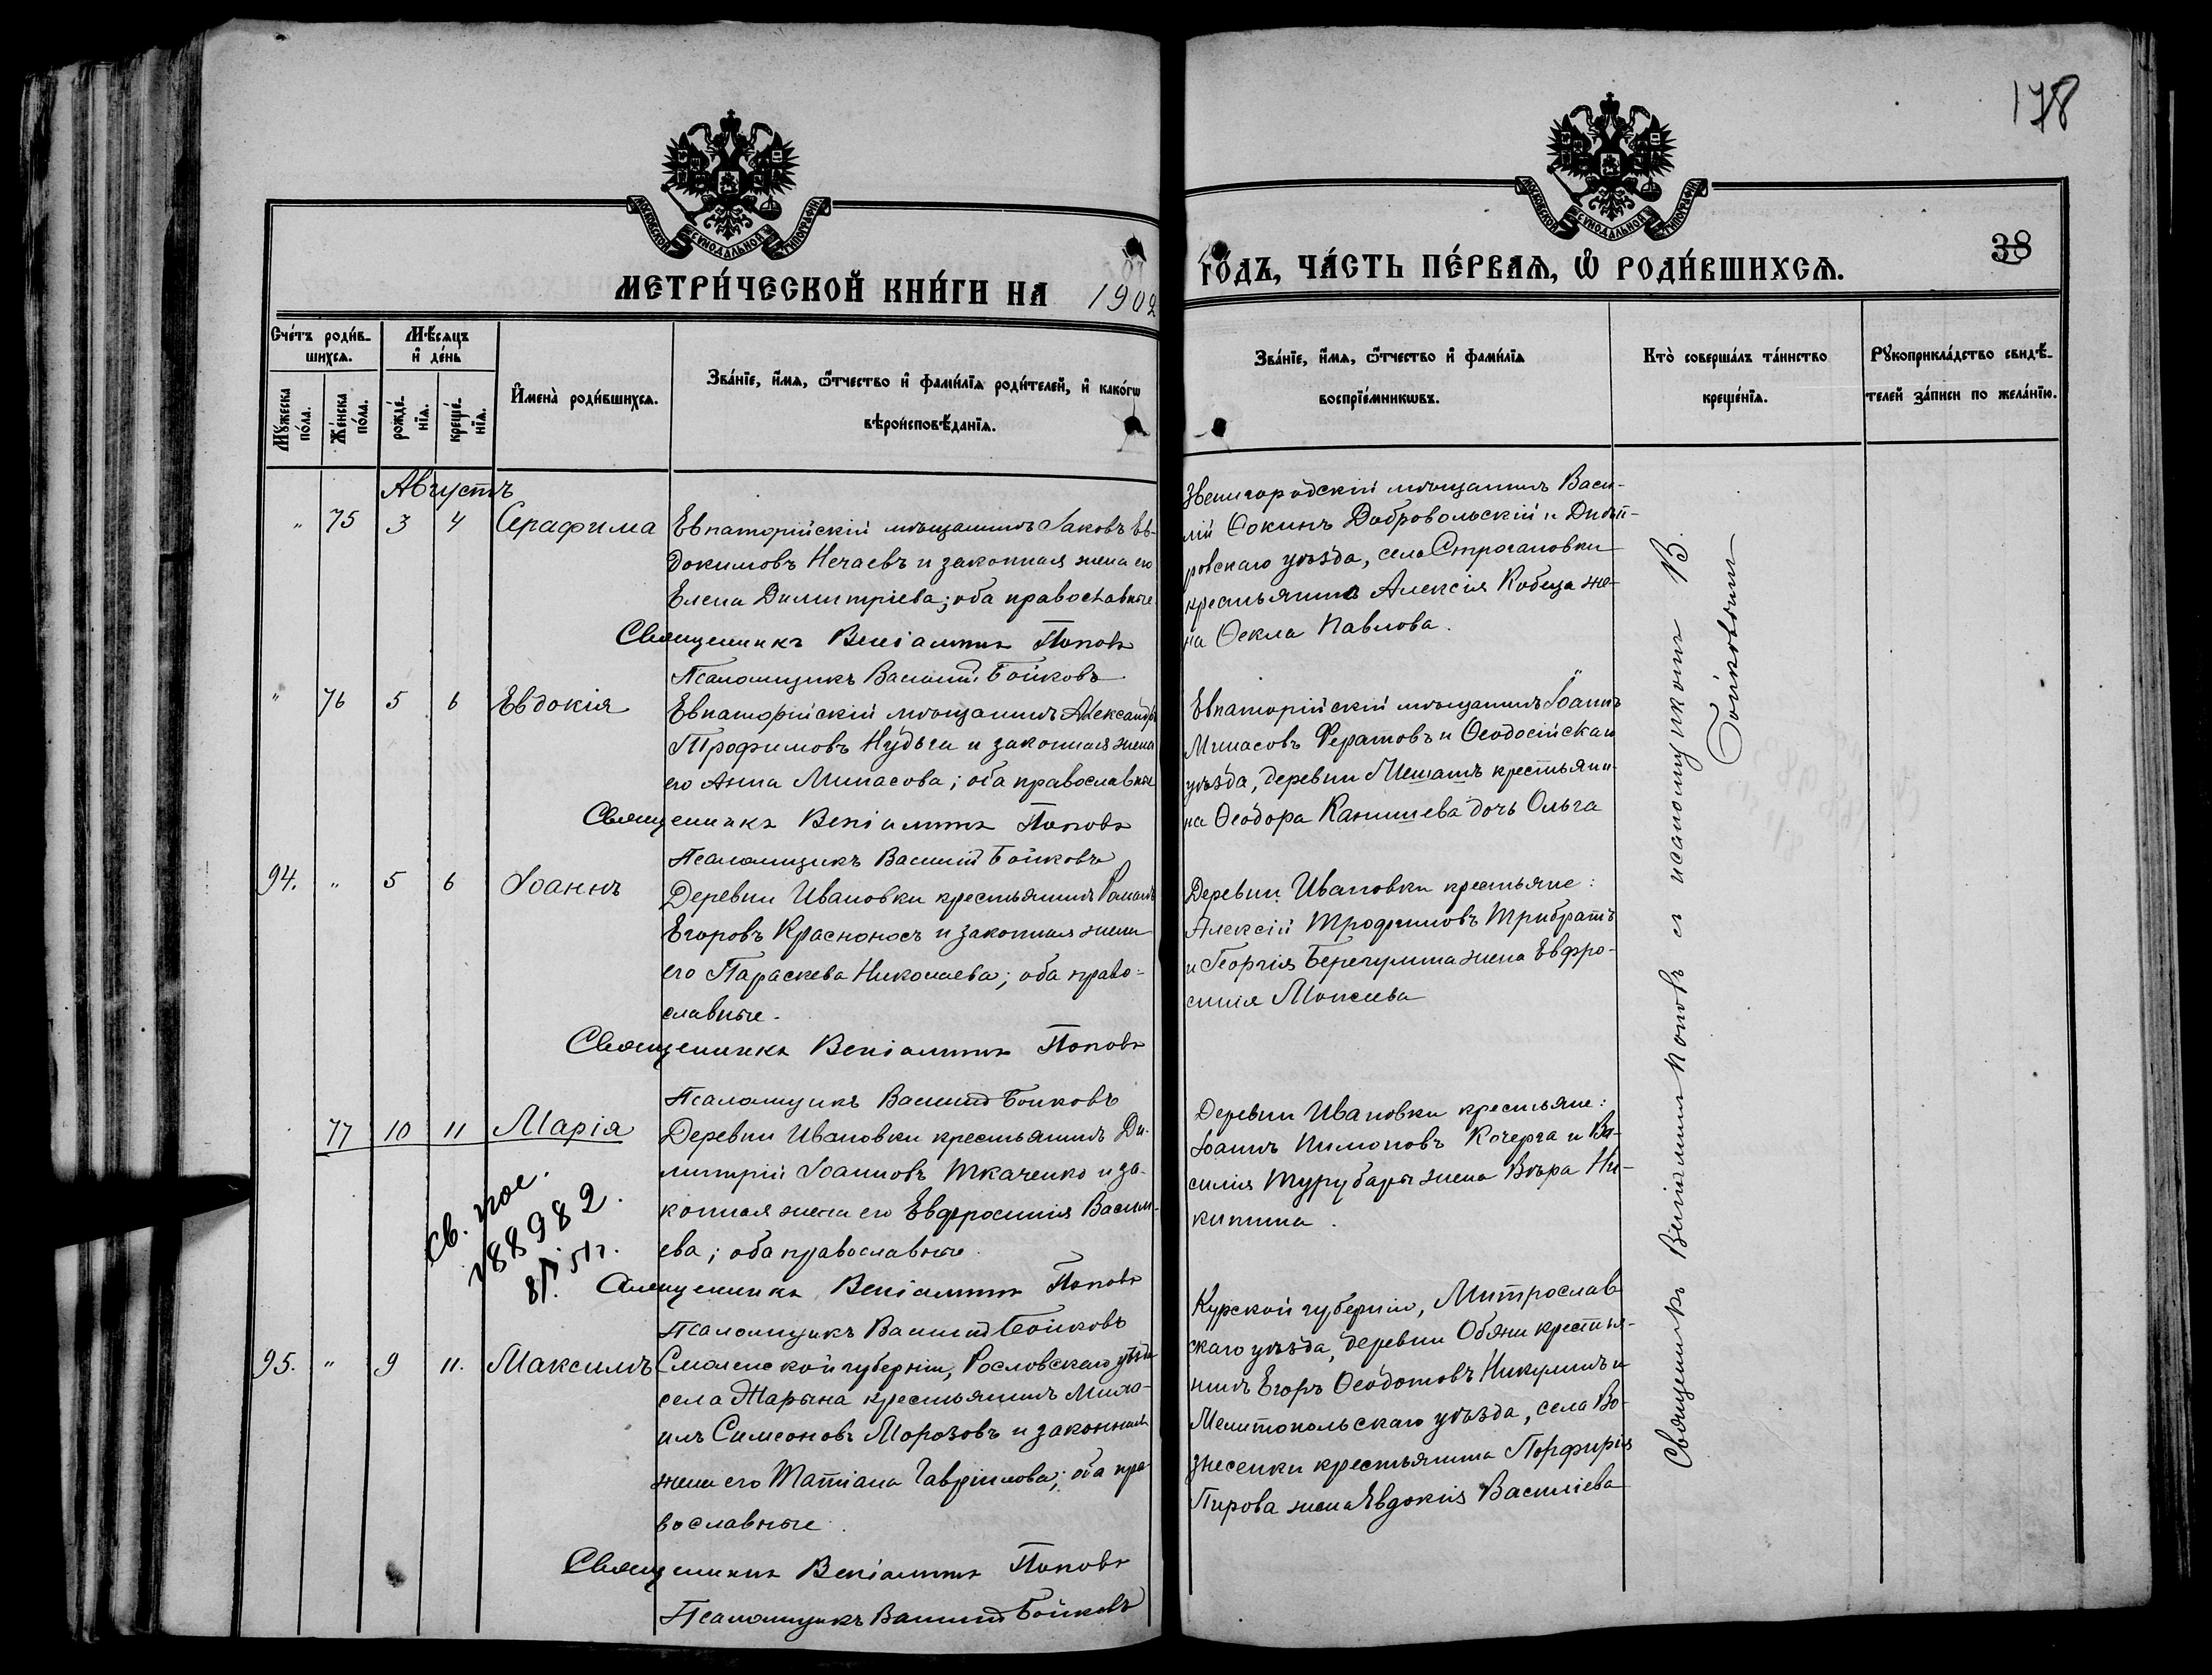 178
МОСКОВСКОЙ СѴНОДАЛЬНОЙ ТИПОГРАФІИ
МОСКОВСКОЙ СѴНОДАЛЬНОЙ ТИПОГРАФІИ
МЕТРИ́ЧЕСКОЙ КНИ́ГИ НА 1902
ГО́ДЪ, ЧА́СТЬ ПЕ́РВАѦ, Ѡ РОДИ́ВШИХСѦ.
38
Сче́тъ роди́в-
шихсѧ.
Мѣ́сѧцъ
и҆ де́нь
Мꙋ́жеска по́ла.
Же́нска по́ла.
рожде́-
нїѧ.
креще́-
нїѧ.
И҆мена̀ роди́вшихсѧ.
Зва́нїе, и҆́мѧ, ѻ҆́тчество и҆ фами́лїѧ роди́телей, и҆ како́гѡ
вѣроисповѣ́данїѧ.
Зва́нїе, и҆́мѧ, ѻ҆́тчество и҆ фами́лїѧ
воспрїе́мникѡвъ.
Кто̀ соверша́лъ та́инство
креще́нїѧ.
Рꙋкоприкла́дство свидѣ́-
телей за́писи по жела́нїю.
Августъ
" 75 3 4 Серафима
Евпаторійскій мѣщанинъ Іаковъ Ев-
докимовъ Нечаевъ и законная жена его
Елена Димитріева; оба православные
Священникъ Веніаминъ Поповъ
Псаломщикъ Василій Бойковъ
Звенигородскій мѣщанинъ Васи-
лій Ѳокинъ Добровольскій и Днѣп-
ровскаго уѣзда, села Строгановки
крестьянина Алексія Кобеца же-
на Ѳекла Павлова.
" 76 5 6 Евдокія
Евпаторійскій мѣщанинъ Александръ
Трофимовъ Нудьга и законная жена
его Анна Минасова; оба православные
Священникъ Веніаминъ Поповъ
Псаломщикъ Василій Бойковъ
Евпаторійскій мѣщанинъ Іоаннъ
Минасовъ Фератовъ и Ѳеодосійскаго
уѣзда, деревни Мешатъ крестьяни-
на Ѳеодора Канишева дочь Ольга
94. " 5 6 Іоаннъ
Деревни Ивановки крестьянинъ Романъ
Егоровъ Красноносъ и законная жена
его Параскева Николаева; оба право-
славные.
Священникъ Веніаминъ Поповъ
Псаломщикъ Василій Бойковъ
Деревни Ивановки крестьяне:
Алексій Трофимовъ Трибратъ
и Георгія жена Евфро-
синія Моисеева
77 10 11 Марія
Деревни Ивановки крестьянинъ Ди-
митрій Іоанновъ Ткаченко и за-
конная жена его Евфросинія Васильи-
ева; оба православные.
Священникъ Веніаминъ Поповъ
Псаломщикъ Василій Бойковъ
Деревни Ивановки крестьяне:
Іоаннъ Пимоновъ Кочерга и Ва-
силія Турубары жена Вѣра Ни-
китина.
95. " 9 11. Максимъ
Смоленской губерніи, Рословскаго уѣзда
села Жарына крестьянинъ Миха-
илъ Симеоновъ Морозовъ и законная
жена его Татіана Гавріилова; оба пра-
вославные.
Священникъ Веніаминъ Поповъ
Псаломщикъ Василій Бойковъ
Курской губерніи, Митрослав-
скаго уѣзда, деревни Обяни крестья-
нинъ Егоръ Ѳеодотовъ Никулинъ и
Мелитопольскаго уѣзда, села Во-
знесенки крестьянина Порфирія
Пирова жена Явдокія Василіева
Священникъ Веніаминъ Поповъ съ псаломщикомъ В.
Бойковымъ